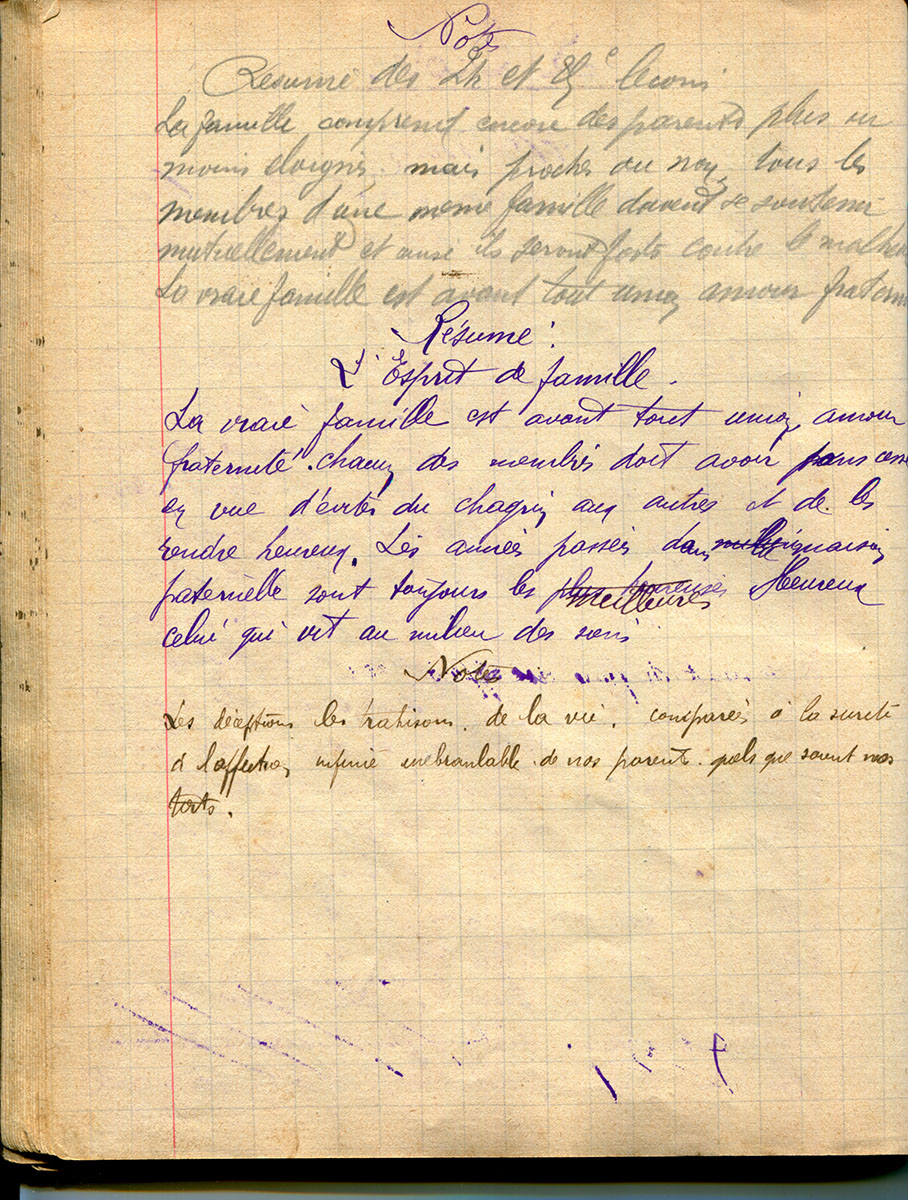 Notes
Résumé des et leçons
La famille comprend encore des parents plus ou
moins éloignés, mais proches ou non, tous les
membres d'une meme famille doivent se soutenir
mutuellement et ainsi ils seront forts contre le malheu
La vraie famille est avant tout union amour fraterni
Résumé :
L'Esprit de famille.
La vraie famille est avant tout union, amour
fraternité. chacun des membres doit avoir sans cesse
en vue d'éviter du chagrin aux autres et de les
rendre heureux. Les années passées dans maison
paternelle sont toujours les plus heureuses meilleures Heureux
celui qui vit au milieu des siens
Notes
Les déceptions les trahisons. de la vie. comparées à la sureté
d l'affection infinie inebranlable de nos parents. quels que soient nos
torts.